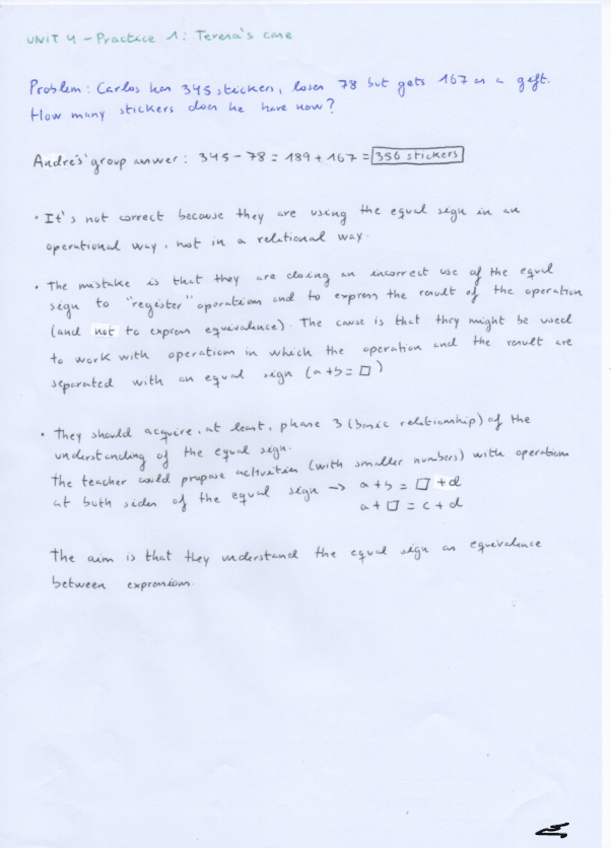 UNIT 4 - Practice 1: Teresa's case
Problem: Carlos has 345 stickers, loses 78 but gets 167 as a gift.
How many stickers does he have now?
Andrés' group answer: 345 - 78 = 189 + 167 = 356 stickers
· It's not correct because they are using the equal sign in an
operational way, not in a relational way.
· The mistake is that they are doing an incorrect use of the equal
sign to "register" operations and to express the result of the operation
(and not to express equivalence). The cause is that they might be used
to work with operations in which the operation and the result are
separated with an equal sign (a + b = □)
· They should acquire, at least, phase 3 (basic relationship) of the
understanding of the equal sign.
The teacher could propose activities (with smaller numbers) with operations
at both sides of the equal sign → a + b = □ + d
a + □ = c + d
The aim is that they understand the equal sign as equivalence
between expressions.